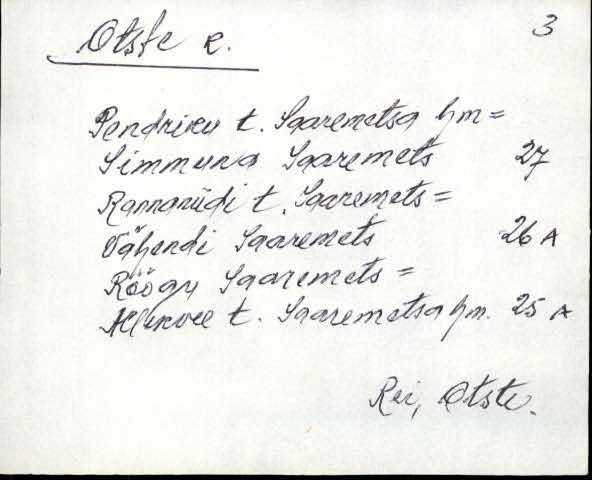 Otste k.
3
Pendriku t. Saaremetsa hm =
Simmuna Saaremets 27
Rannanüdi t. Saaremets =
Vähendi Saaremets 26 A
Röögu Saaremets =
t. Saaremetsa hm. 25 A
Rei, Otste.